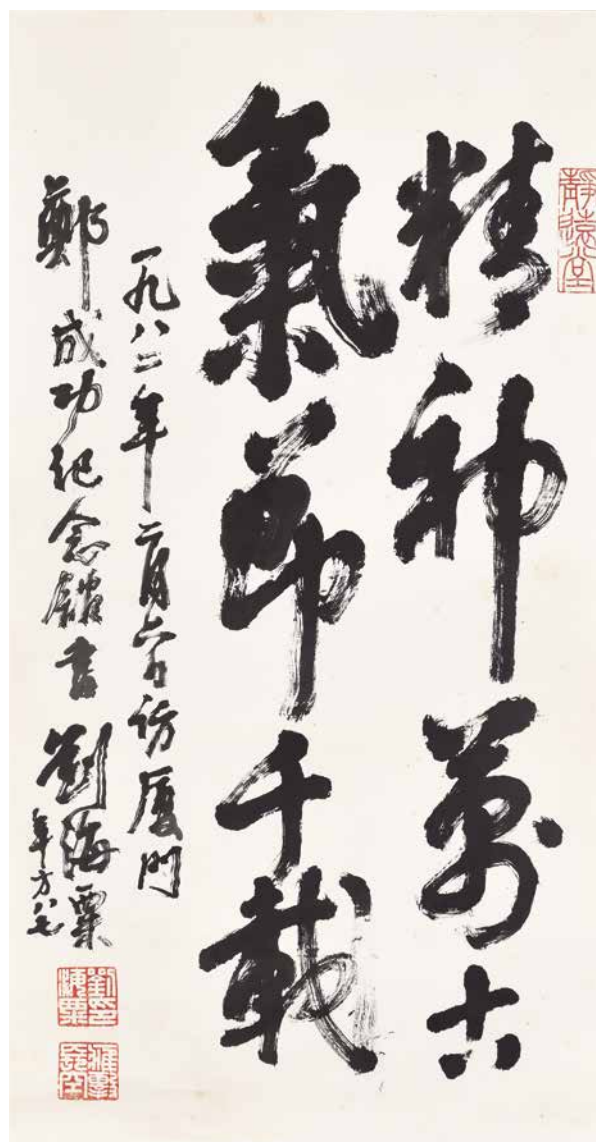 靜遠堂
精神萬古
氣節千載
一九八二年二月六日訪厦門
鄭成功紀念館書 劉海粟 年方八七
劉印海粟